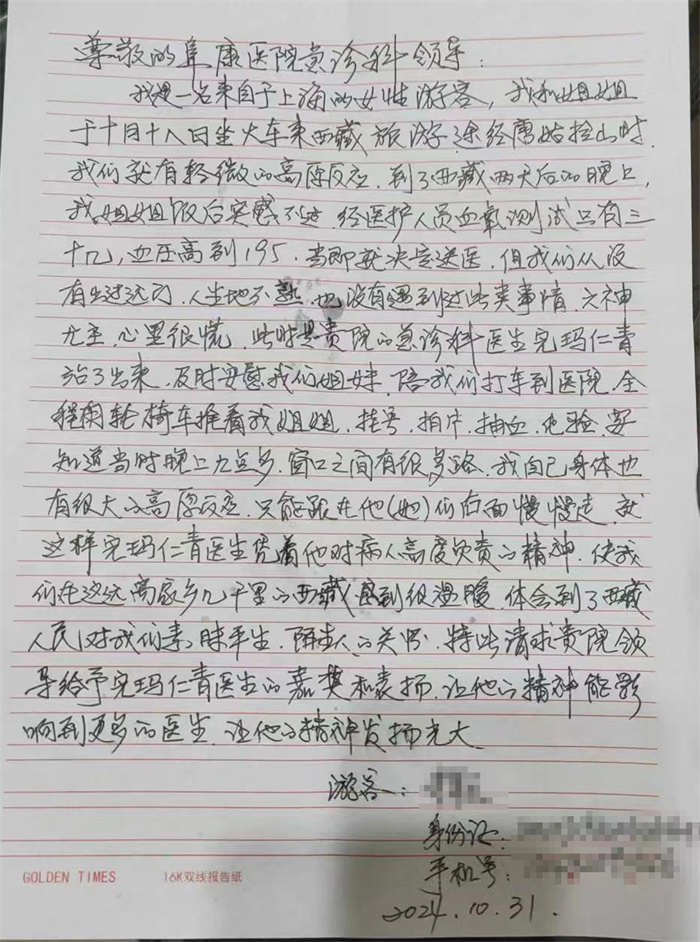 尊敬的阜康医院负诊科领导:
我是一名来自于上海的女性游客,我和姐姐
于十月十八日坐火车来西藏旅游.途经唐姑拉山时.
我们就有轻微的高原反应.到了西藏两天后的晚上,
我姐姐饭后突感不适.经医护人员血氧测试只有三
十几,血压高到195.当即就决定送医.但我们从没
有出过远门.人生地不熟.也没有遇到过此类事情.六神
无主.心里很慌.此时是贵院的急诊科医生完玛仁青
站了出来.及时安慰我们姐妹.陪我们打车到医院.全
程用轮椅车推着我姐姐.挂号.拍片.抽血.化验.要
知道当时晚上九点多.窗口之间有很多路.我自己身体也
有很大的高原反应.只能跟在他(她)们后面慢慢走.就
这样完玛仁青医生凭着他对病人高度负责的精神.使我
们在这远离家乡几千里的西藏感到很温暖.体会到了西藏
人民对我们素昧平生.陌生人的关怀.特此请求贵院领
导给予完玛仁青医生的嘉奖和表扬.让他的精神能影
响到更多的医生.让他的精神发扬光大
游客:
身份证:
手机号:
2024.10.31.
GOLDEN TIMES 16K双线报告纸